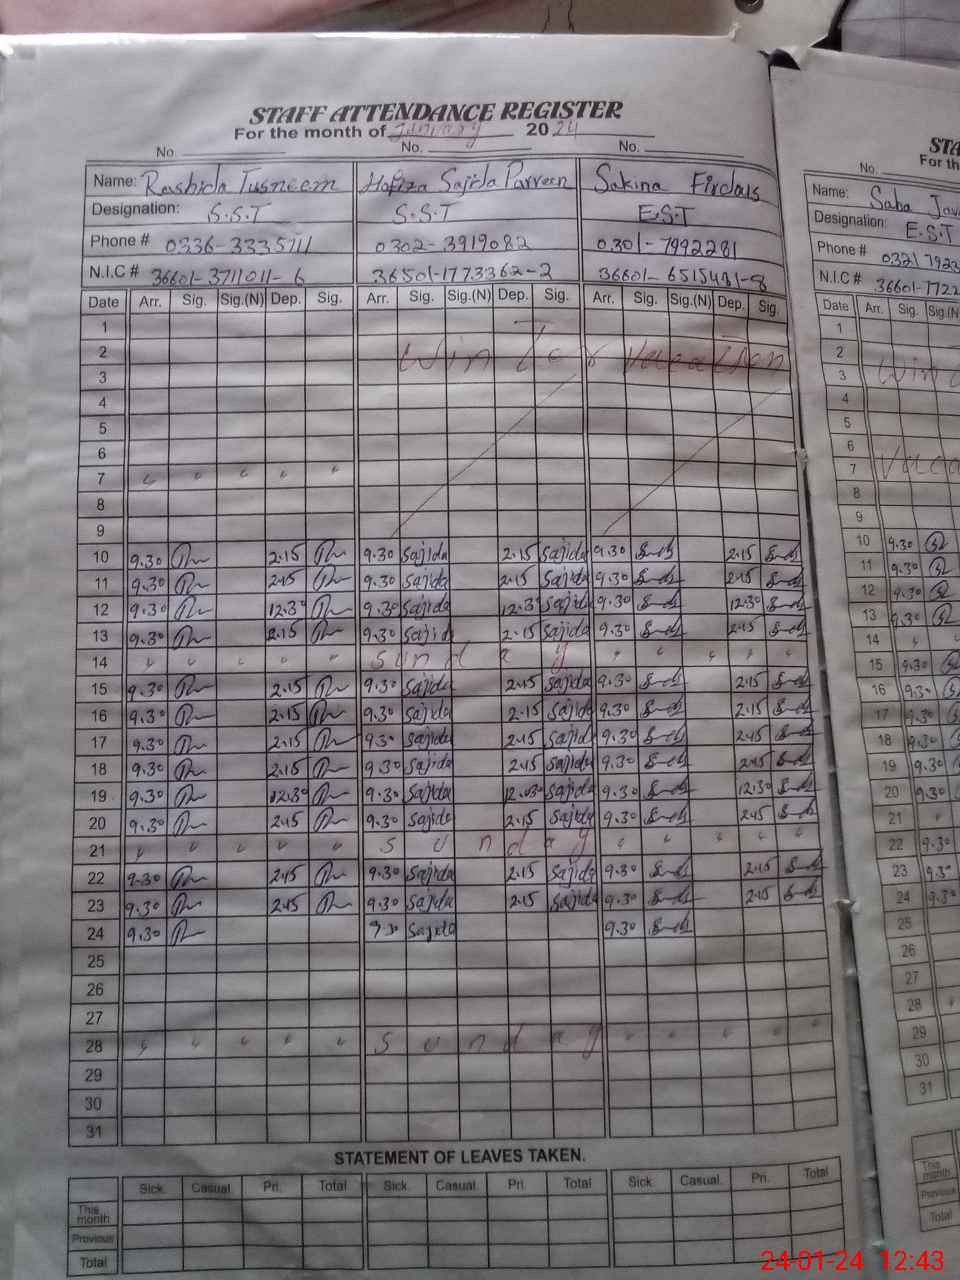 STAFF ATTENDANCE REGISTER
For the month of January 2024
No. No. No.
Name: Rashida Tusneem Hafiza Sajida Parveen Sakina Firdous
Designation: S.S.T S.S.T E.S.T
Phone # 0336-3335711 0302-3919082 0301-7992281
N.I.C # 36601-3711011-6 36501-1773362-2 36601-6515481-8
Date Arr. Sig. Sig.(N) Dep. Sig. Arr. Sig. Sig.(N) Dep. Sig. Arr. Sig. Sig.(N) Dep. Sig.
1
2 Winter Vacation
3
4
5
6
7 " " " " "
8
9
10 9.30 2.15 9.30 Sajida 2.15 Sajida 9.30 2.15
11 9.30 2.15 9.30 Sajida 2.15 Sajida 9.30 2.15
12 9.30 12.30 9.30 Sajida 12.30 Sajida 9.30 12.30
13 9.30 2.15 9.30 Sajida 2.15 Sajida 9.30 2.15
14 " " " " " Sunday " " " " "
15 9.30 2.15 9.30 Sajida 2.15 Sajida 9.30 2.15
16 9.30 2.15 9.30 Sajida 2.15 Sajida 9.30 2.15
17 9.30 2.15 9.30 Sajida 2.15 Sajida 9.30 2.15
18 9.30 2.15 9.30 Sajida 2.15 Sajida 9.30 2.15
19 9.30 12.30 9.30 Sajida 12.30 Sajida 9.30 12.30
20 9.30 2.15 9.30 Sajida 2.15 Sajida 9.30 2.15
21 " " " " " Sunday " " " " "
22 9.30 2.15 9.30 Sajida 2.15 Sajida 9.30 2.15
23 9.30 2.15 9.30 Sajida 2.15 Sajida 9.30 2.15
24 9.30 9.30 Sajida 9.30
25
26
27
28 " " " " " Sunday " " " " "
29
30
31
STATEMENT OF LEAVES TAKEN.
Sick. Casual. Pri. Total Sick. Casual. Pri. Total Sick. Casual. Pri. Total
This month
Previous
Total
No.
Name: Saba
Designation: E.S.T
Phone # 0321 7923
N.I.C # 36601-7722
Date Arr. Sig. Sig.(N)
1
2
3
4
5
6
7
8
9
10 9.30
11 9.30
12 9.30
13 9.30
14 " "
15 9.30
16 9.30
17 9.30
18 9.30
19 9.30
20 9.30
21 "
22 9.30
23 9.30
24 9.30
25
26
27
28 "
29
30
31
This month
Previous
Total
24-01-24 12:43